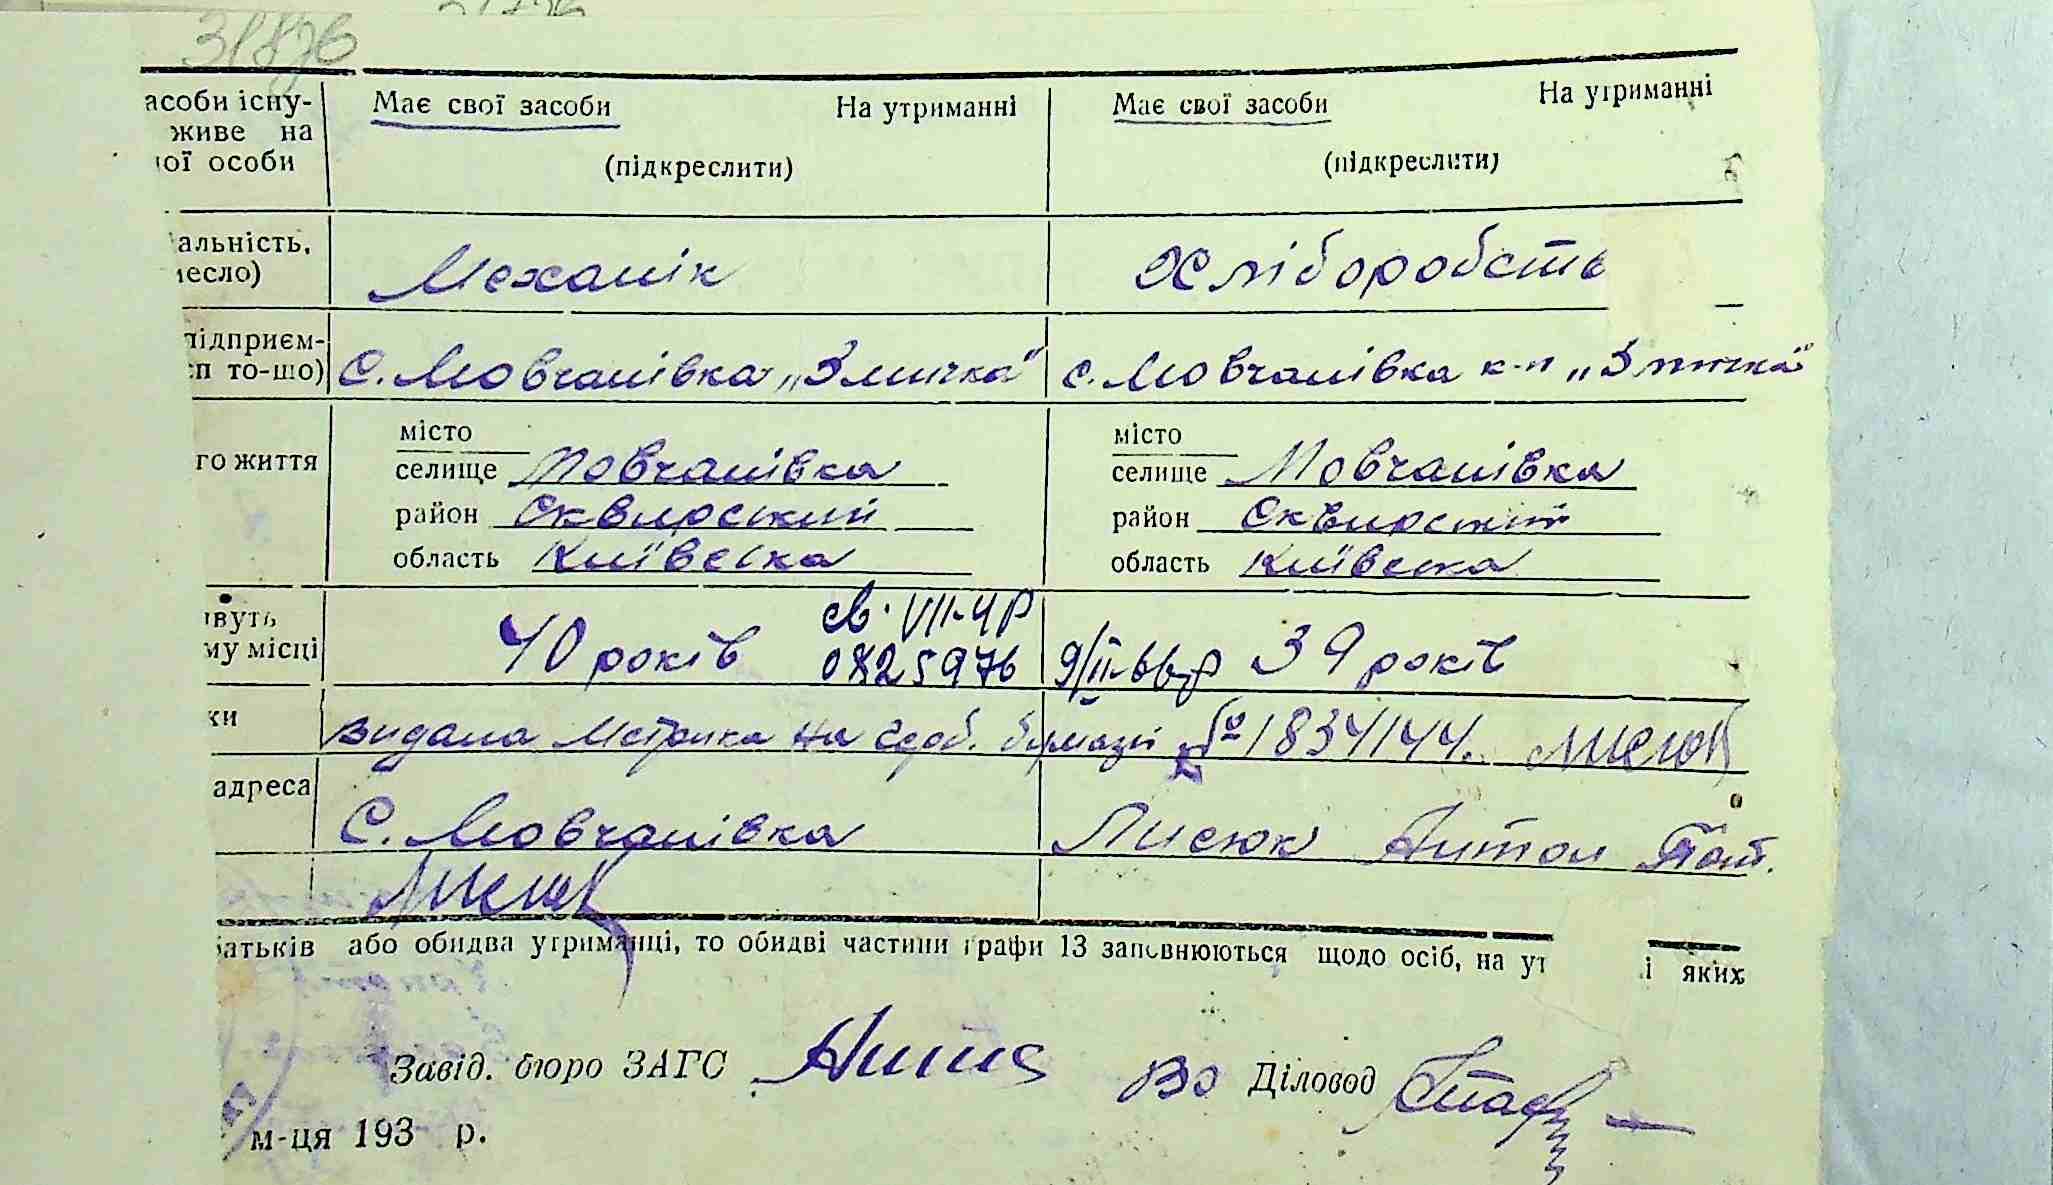 31876
асоби існу- Має свої засоби На утриманні Має свої засоби На утриманні
живе на
ої особи (підкреслити) (підкреслити)
альність, Механік Хліборобств
месло)
підприєм-
сп то-що) С. Мовчанівка „Змичка" с. Мовчанівка к-п „Змичка"
місто місто
го життя селище Мовчанівка селище Мовчанівка
район Сквирський район Сквирський
область Київська область Київська
ивуть св. VII-ЧР
му місці 40 років 0825976 9/II-66р 39 років
ки видана Метрика на здоб. бумазі № 1834144.
адреса
С. Мовчанівка Лисюк Антон
батьків або обидва утриманці, то обидві частини графи 13 заповнюються щодо осіб, на ут і яких
Завід. бюро ЗАГС Вз Діловод
м-ця 193 р.